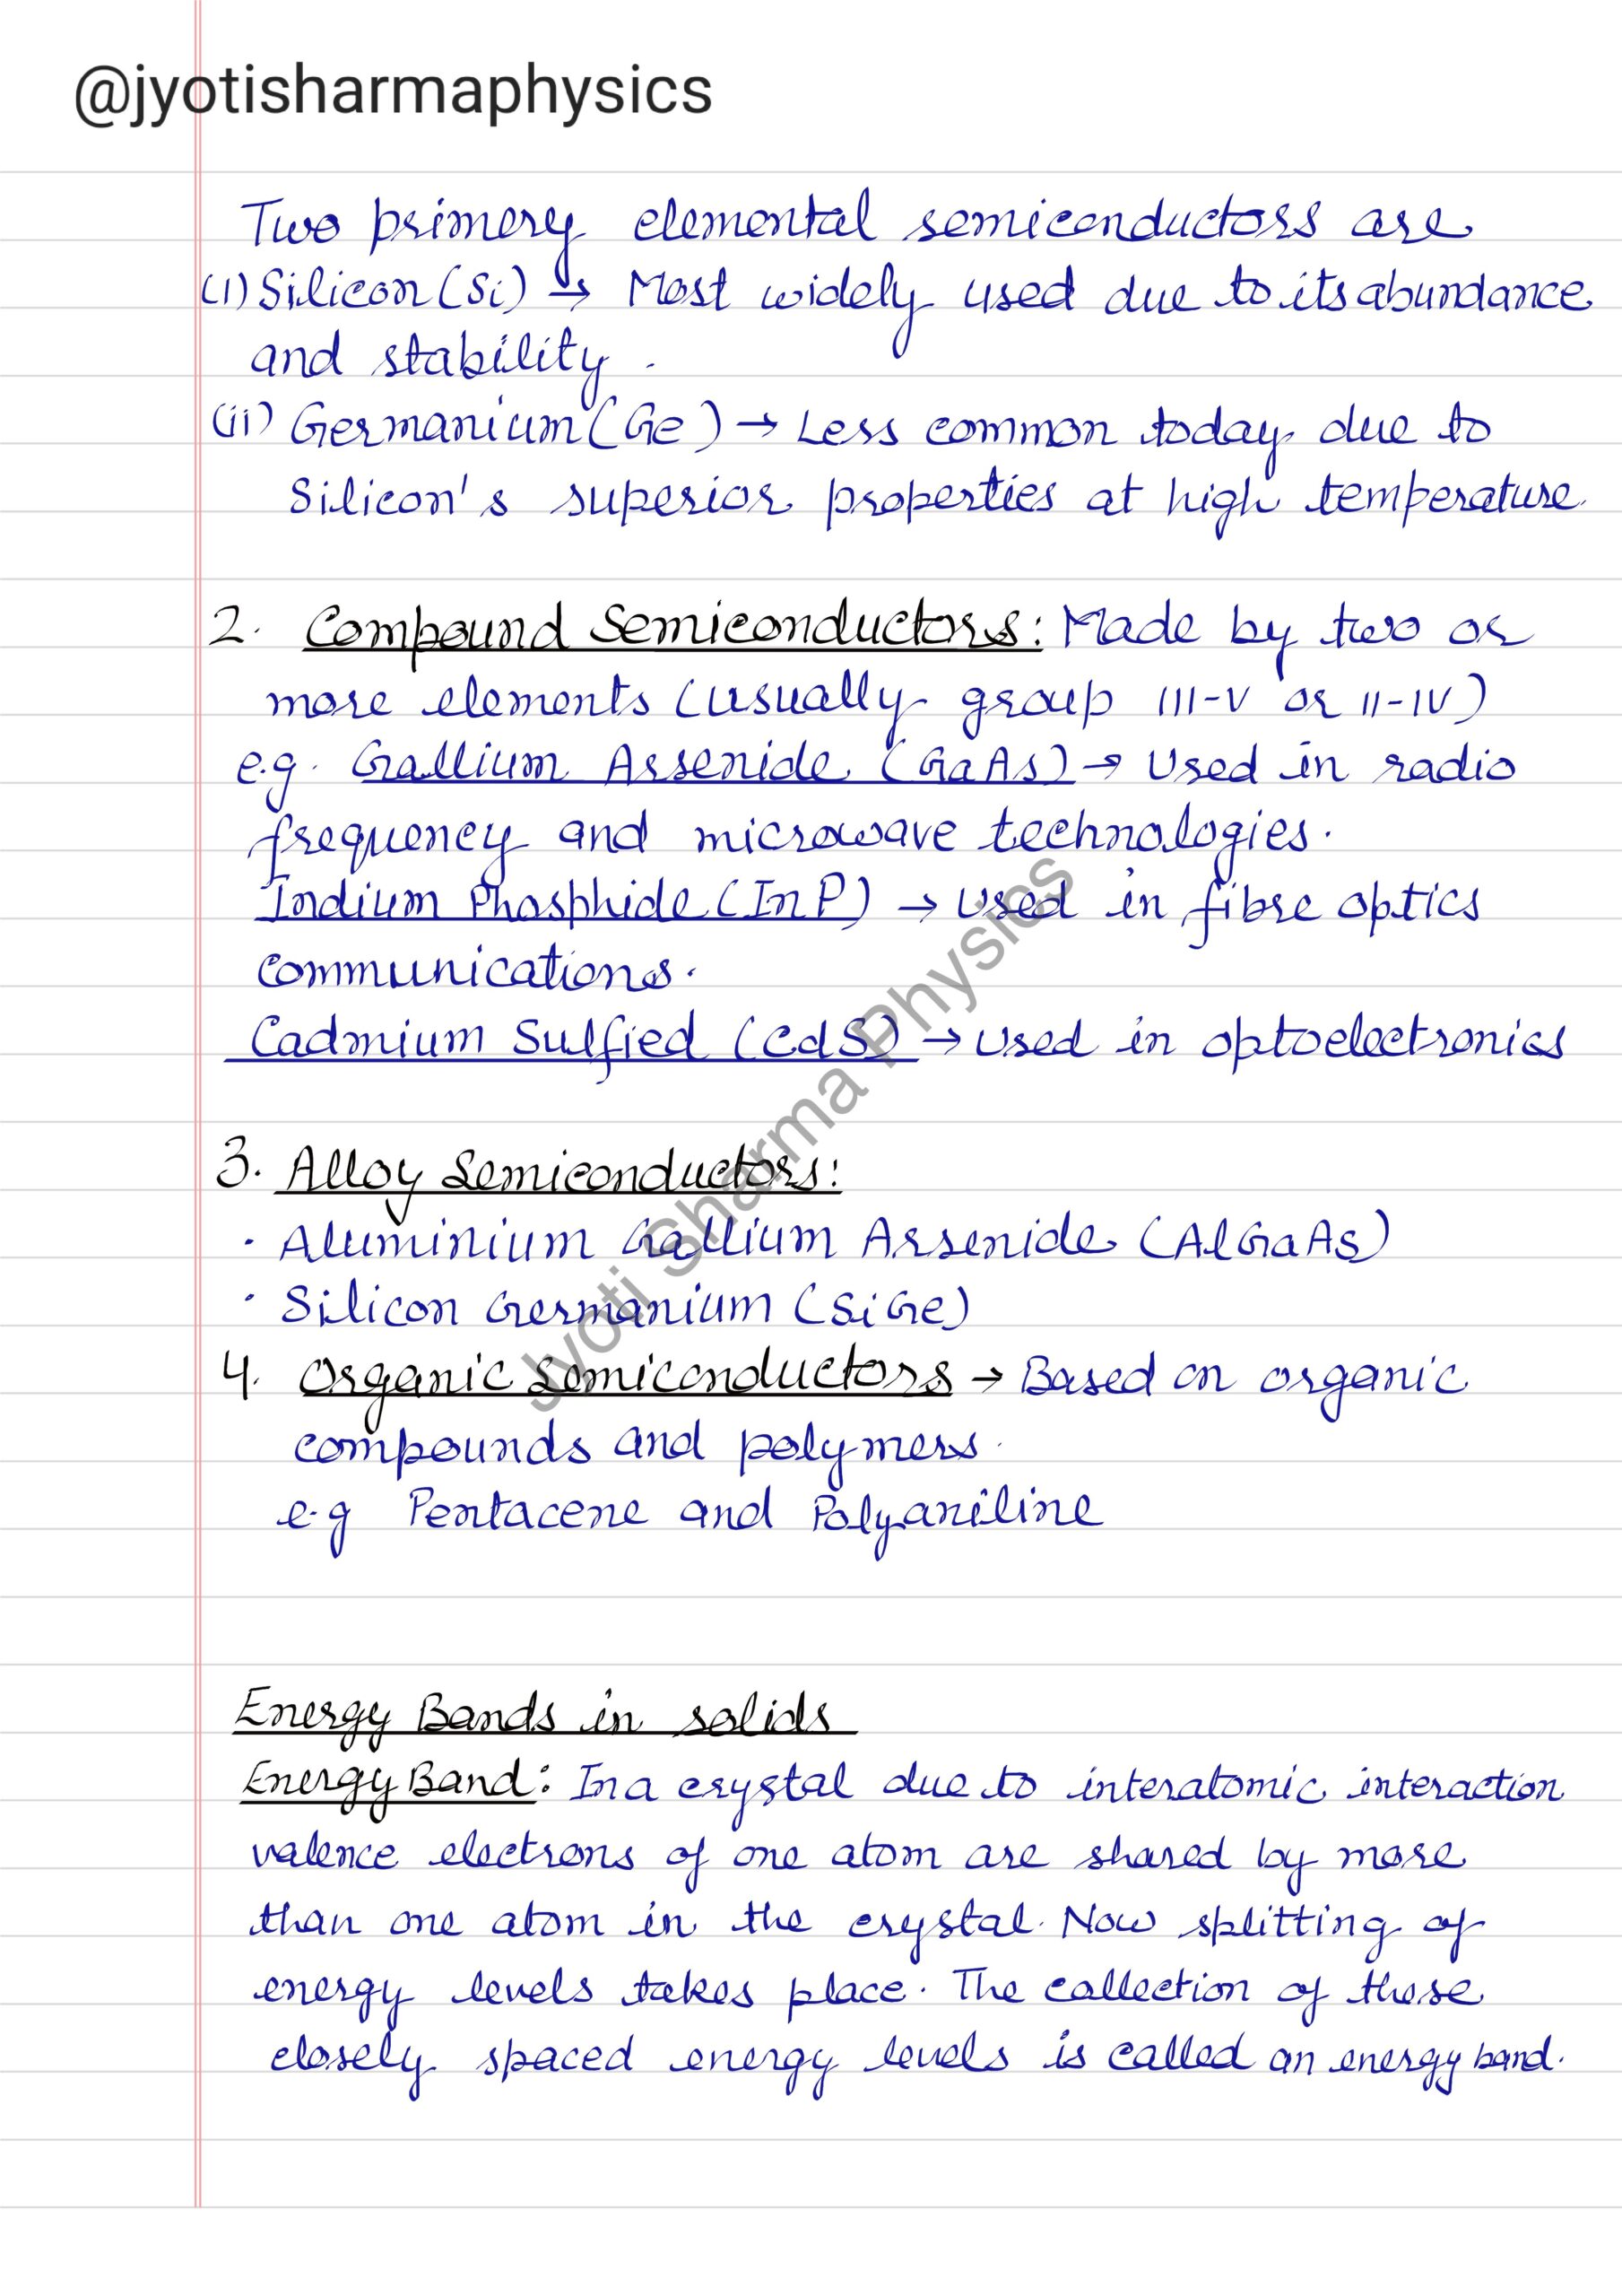 @jyotisharmaphysics
Two primery elemental semiconductors are
(i) Silicon (Si) → Most widely used due to its abundance
and stability.
(ii) Germanium (Ge) → Less common today due to
Silicon's superior properties at high temperature.
2. Compound Semiconductors: Made by two or
more elements (usually group III-V or II-IV)
e.g. Gallium Arsenide (GaAs) → Used in radio
frequency and microwave technologies.
Indium Phosphide (InP) → Used in fibre optics
communications.
Cadmium Sulfied (CdS) → Used in optoelectronics
3. Alloy Semiconductors:
· Aluminium Gallium Arsenide (AlGaAs)
· Silicon Germanium (SiGe)
4. Organic Semiconductors → Based on organic
compounds and polymers.
e.g Pentacene and Polyaniline
Jyoti Sharma Physics
Energy Bands in solids
Energy Band: In a crystal due to interatomic interaction
valence electrons of one atom are shared by more
than one atom in the crystal. Now splitting of
energy levels takes place. The collection of these
closely spaced energy levels is called an energy band.